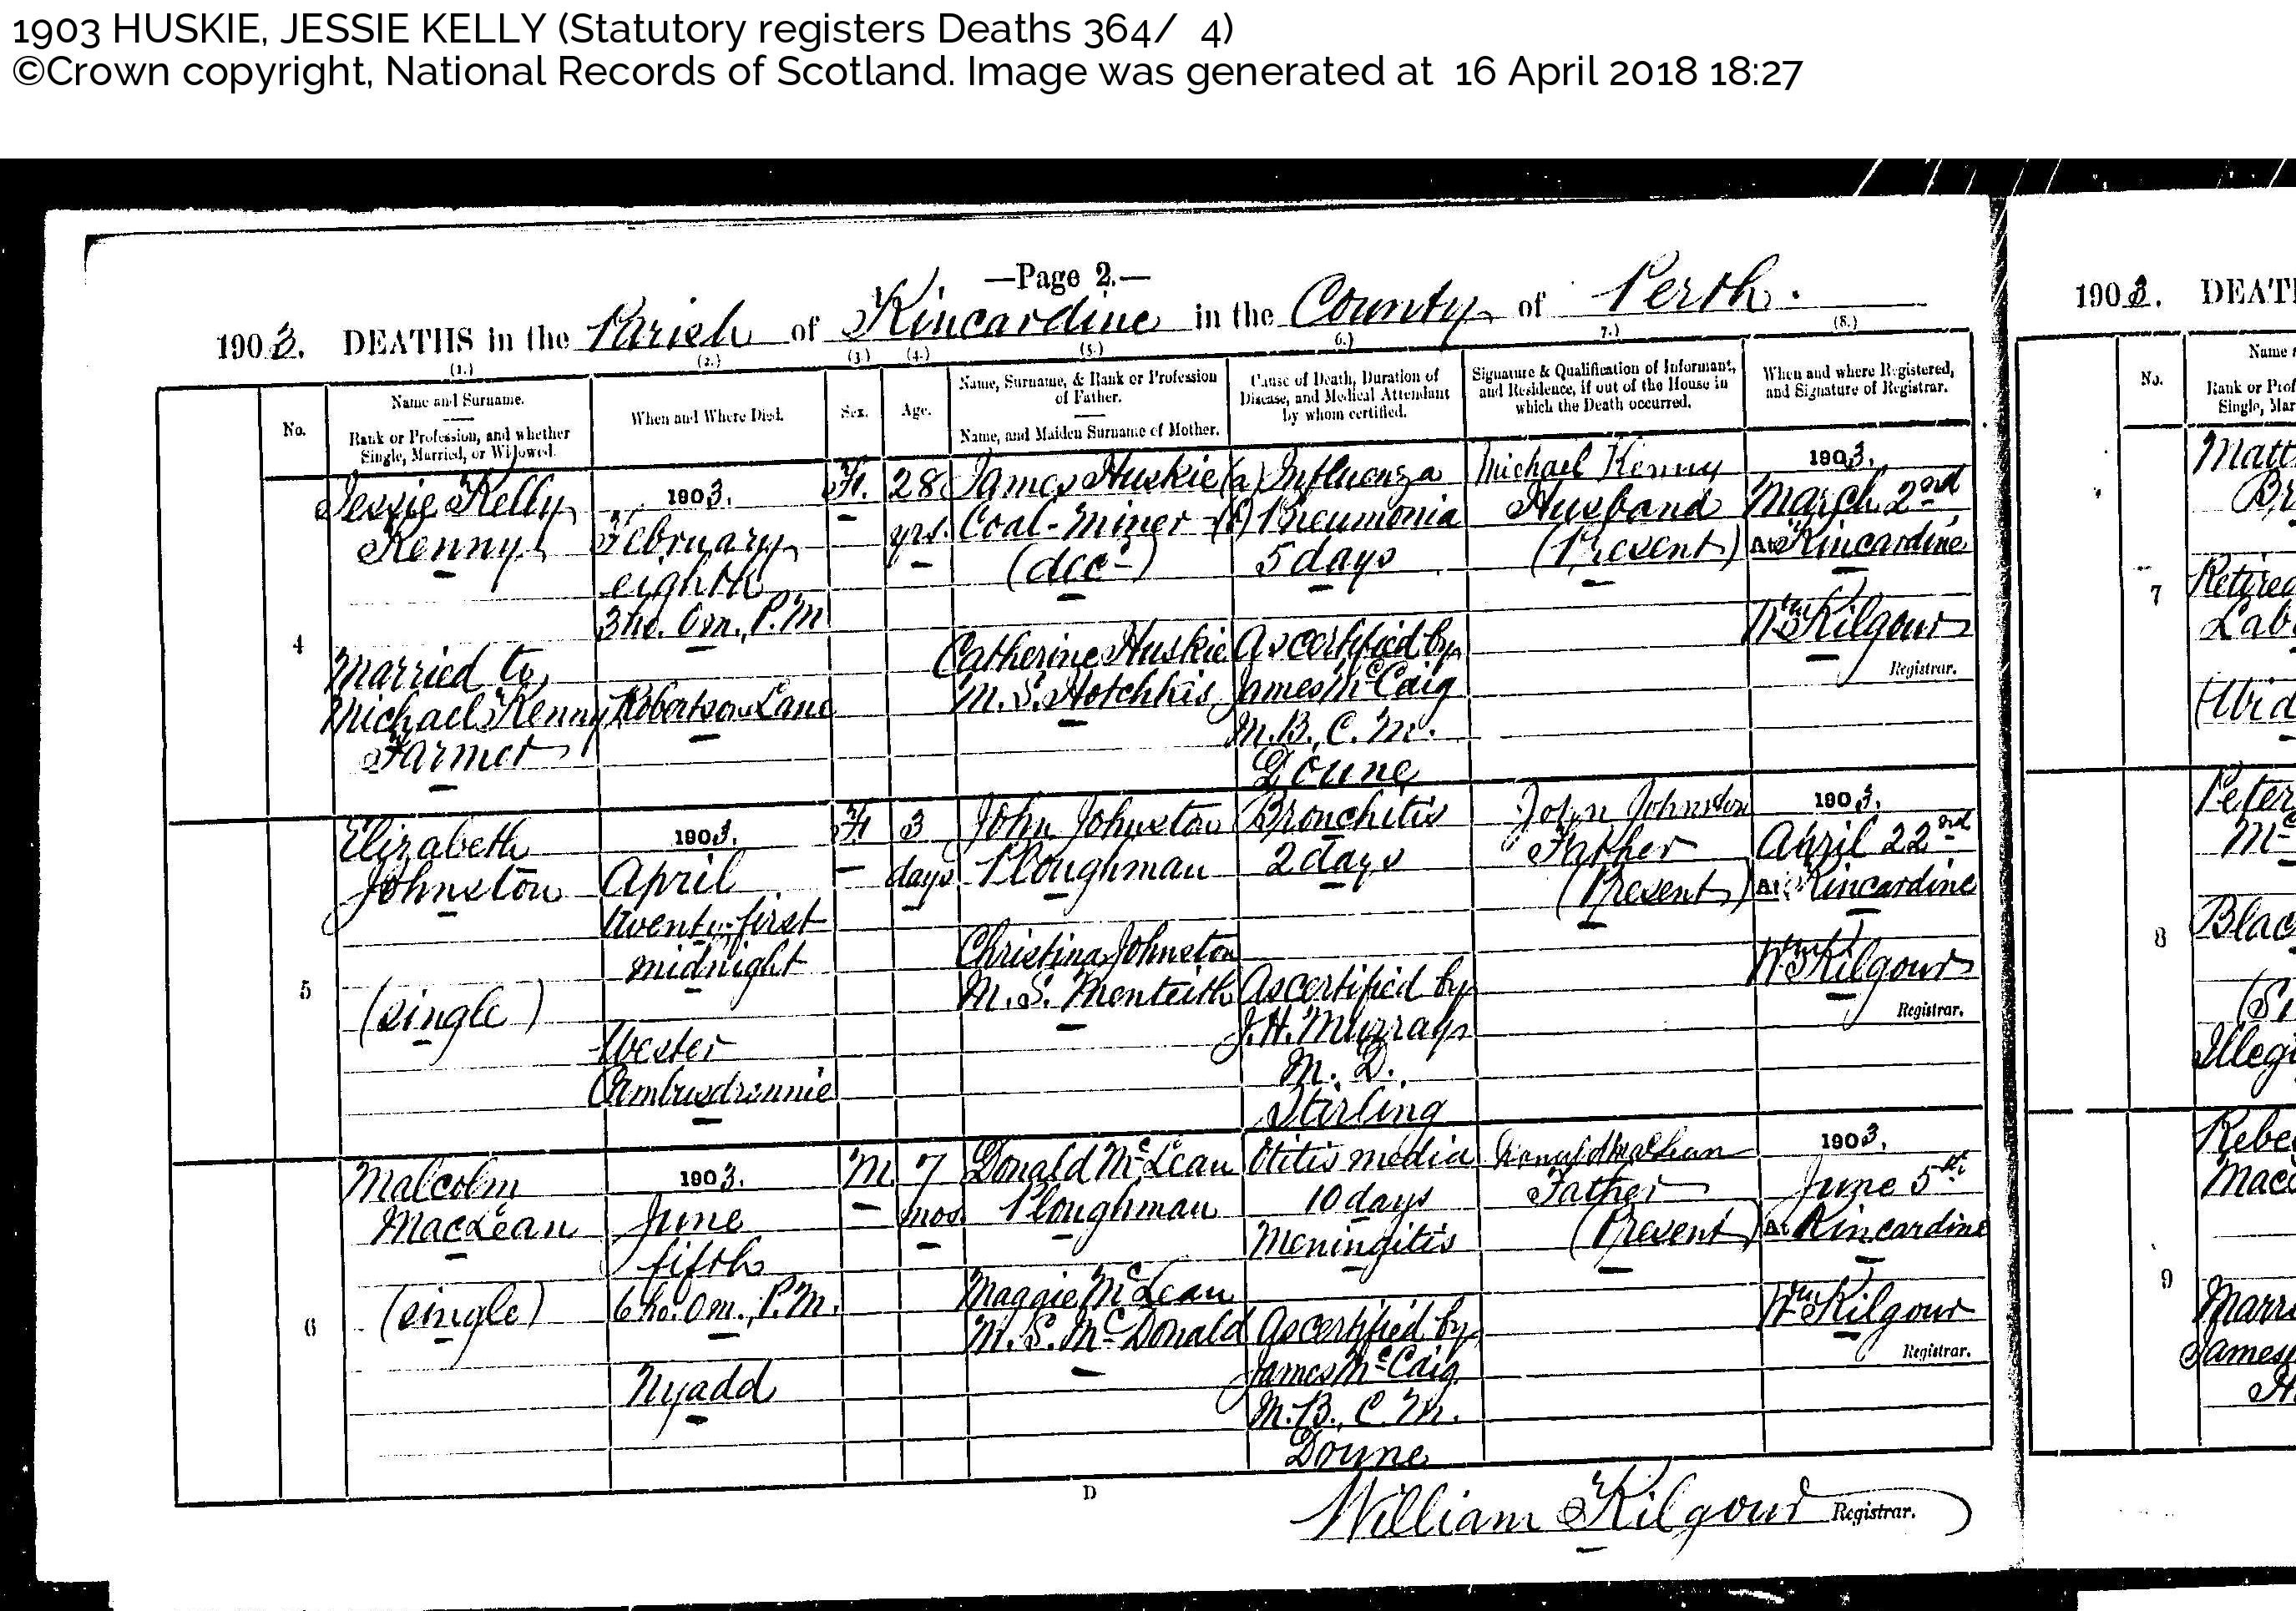 1903 HUSKIE, JESSIE KELLY (Statutory registers Deaths 364/ 4)
©Crown copyright, National Records of Scotland. Image was generated at 16 April 2018 18:27
—Page 2.—
1903. DEATHS in the Parish of Kincardine in the County of Perth.
(1.) (2.) (3.) (4.) (5.) 6.) 7.) (8.)
No.
Name and Surname.
Rank or Profession, and whether
Single, Married, or Widowed.
When and Where Died.
Sex.
Age.
Name, Surname, & Rank or Profession
of Father.
Name, and Maiden Surname of Mother.
Cause of Death, Duration of
Disease, and Medical Attendant
by whom certified.
Signature & Qualification of Informant,
and Residence, if out of the House in
which the Death occurred.
When and where Registered,
and Signature of Registrar.
4
Jessie Kelly
Kenny
Married to
Michael Kenny
Farmer
1903.
February
eighth
3 ho. 0 m., P.M
Robertson Lane
F.
28
yrs.
James Huskie
Coal-miner
(decd)
Catherine Huskie
M.S. Hotchkis
(a) Influenza
(b) Pneumonia
5 days
As certified by
James McCaig
M.B., C.M.
Doune
Michael Kenny
Husband
(Present)
1903.
March 2nd
At Kincardine
Wm Kilgour
Registrar.
5
Elizabeth
Johnston
(single)
1903.
April
twenty-first
midnight
Wester
F.
3
days
John Johnston
Ploughman
Christina Johnston
M.S. Menteith
Bronchitis
2 days
As certified by
J.H. Murray
M.D.
Stirling
John Johnston
Father
(Present)
1903.
April 22nd
At Kincardine
Wm Kilgour
Registrar.
6
Malcolm
MacLean
(single)
1903.
June
fifth
6 ho. 0 m., P.M.
Nyadd
M.
7
mos.
Donald McLean
Ploughman
Maggie McLean
M.S. McDonald
Otitis media
10 days
Meningitis
As certified by
James McCaig
M.B., C.M.
Doune
Donald MacLean
Father
(Present)
1903.
June 5th
At Kincardine
Wm Kilgour
Registrar.
D
William Kilgour Registrar.
1903. DEAT
No.
Name
Rank or Prof
Single, Mar
7
Matt
Br
Retired
Lab
(Wid
8
Peter
Mc
Blac
(Si
Illegi
9
Rebe
Mac
Marri
James
H